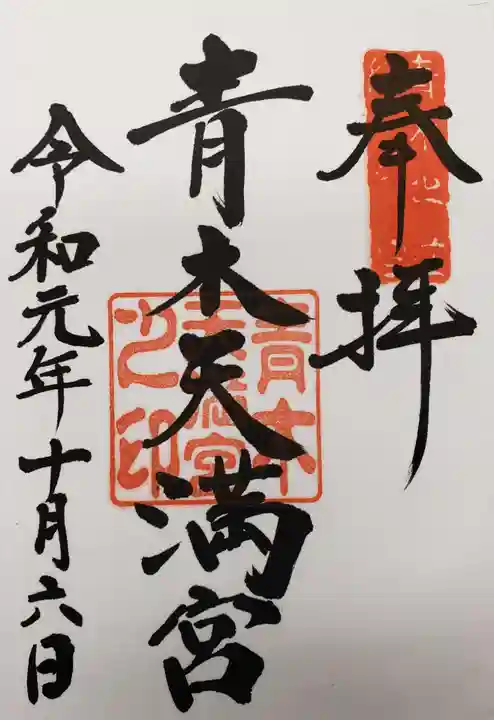 奉拝
青木天満宮
令和元年十月六日
青木
天満宮
之印